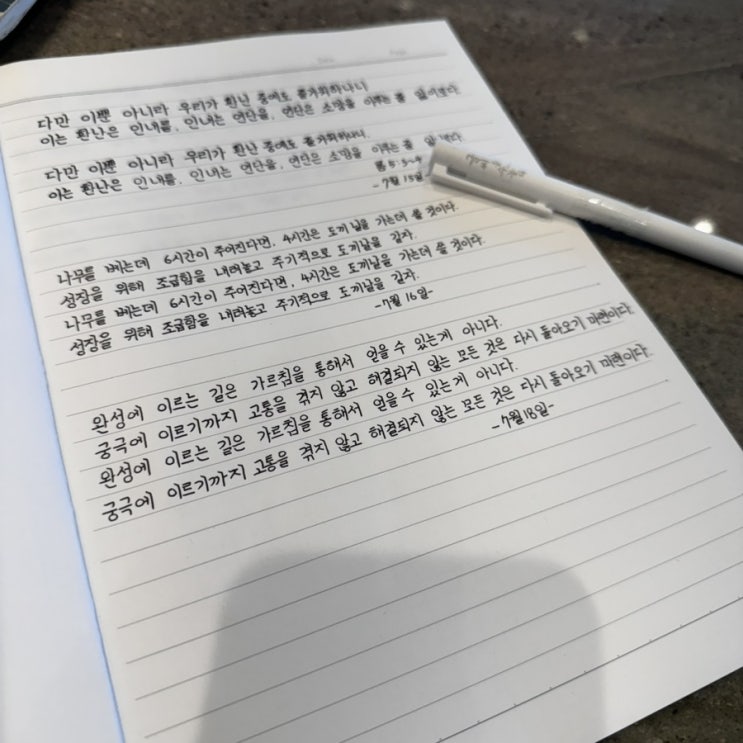 다만 이뿐 아니라 우리가 환난 중에도 즐거워하나니
이는 환난은 인내를, 인내는 연단을, 연단은 소망을 이루는 줄 앎이로다
다만 이뿐 아니라 우리가 환난 중에도 즐거워하나니.
이는 환난은 인내를, 인내는 연단을, 연단은 소망을 이루는 줄
롬 5:3-4
-7월 15일
나무를 베는데 6시간이 주어진다면, 4시간은 도끼날을 가는데 쓸 것이다.
성장을 위해 조급함을 내려놓고 주기적으로 도끼날을 갈자.
나무를 베는데 6시간이 주어진다면, 4시간은 도끼날을 가는데 쓸 것이다.
성장을 위해 조급함을 내려놓고 주기적으로 도끼날을 갈자.
-7월 16일-
완성에 이르는 길은 가르침을 통해서 얻을 수 있는게 아니다.
궁극에 이르기까지 고통을 겪지 않고 해결되지 않는 모든 것은 다시 돌아오기 마련이다.
완성에 이르는 길은 가르침을 통해서 얻을 수 있는게 아니다.
궁극에 이르기까지 고통을 겪지 않고 해결되지 않는 모든 것은 다시 돌아오기 마련이다.
-7월 18일-